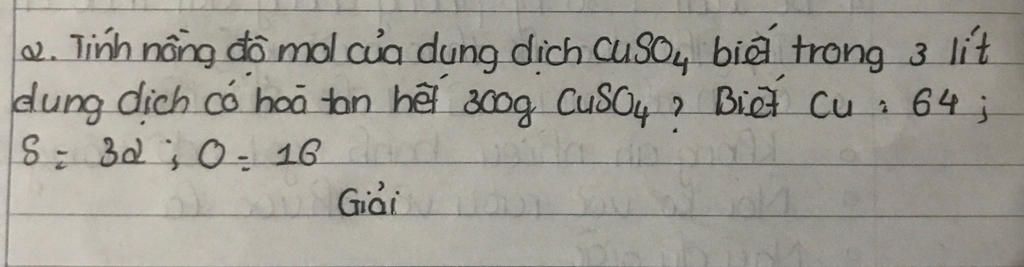 2. Tính nồng độ mol của dung dịch CuSO4 biết trong 3 lít
dung dịch có hoà tan hết 300g CuSO4? Biết Cu = 64;
S = 32; O = 16
Giải